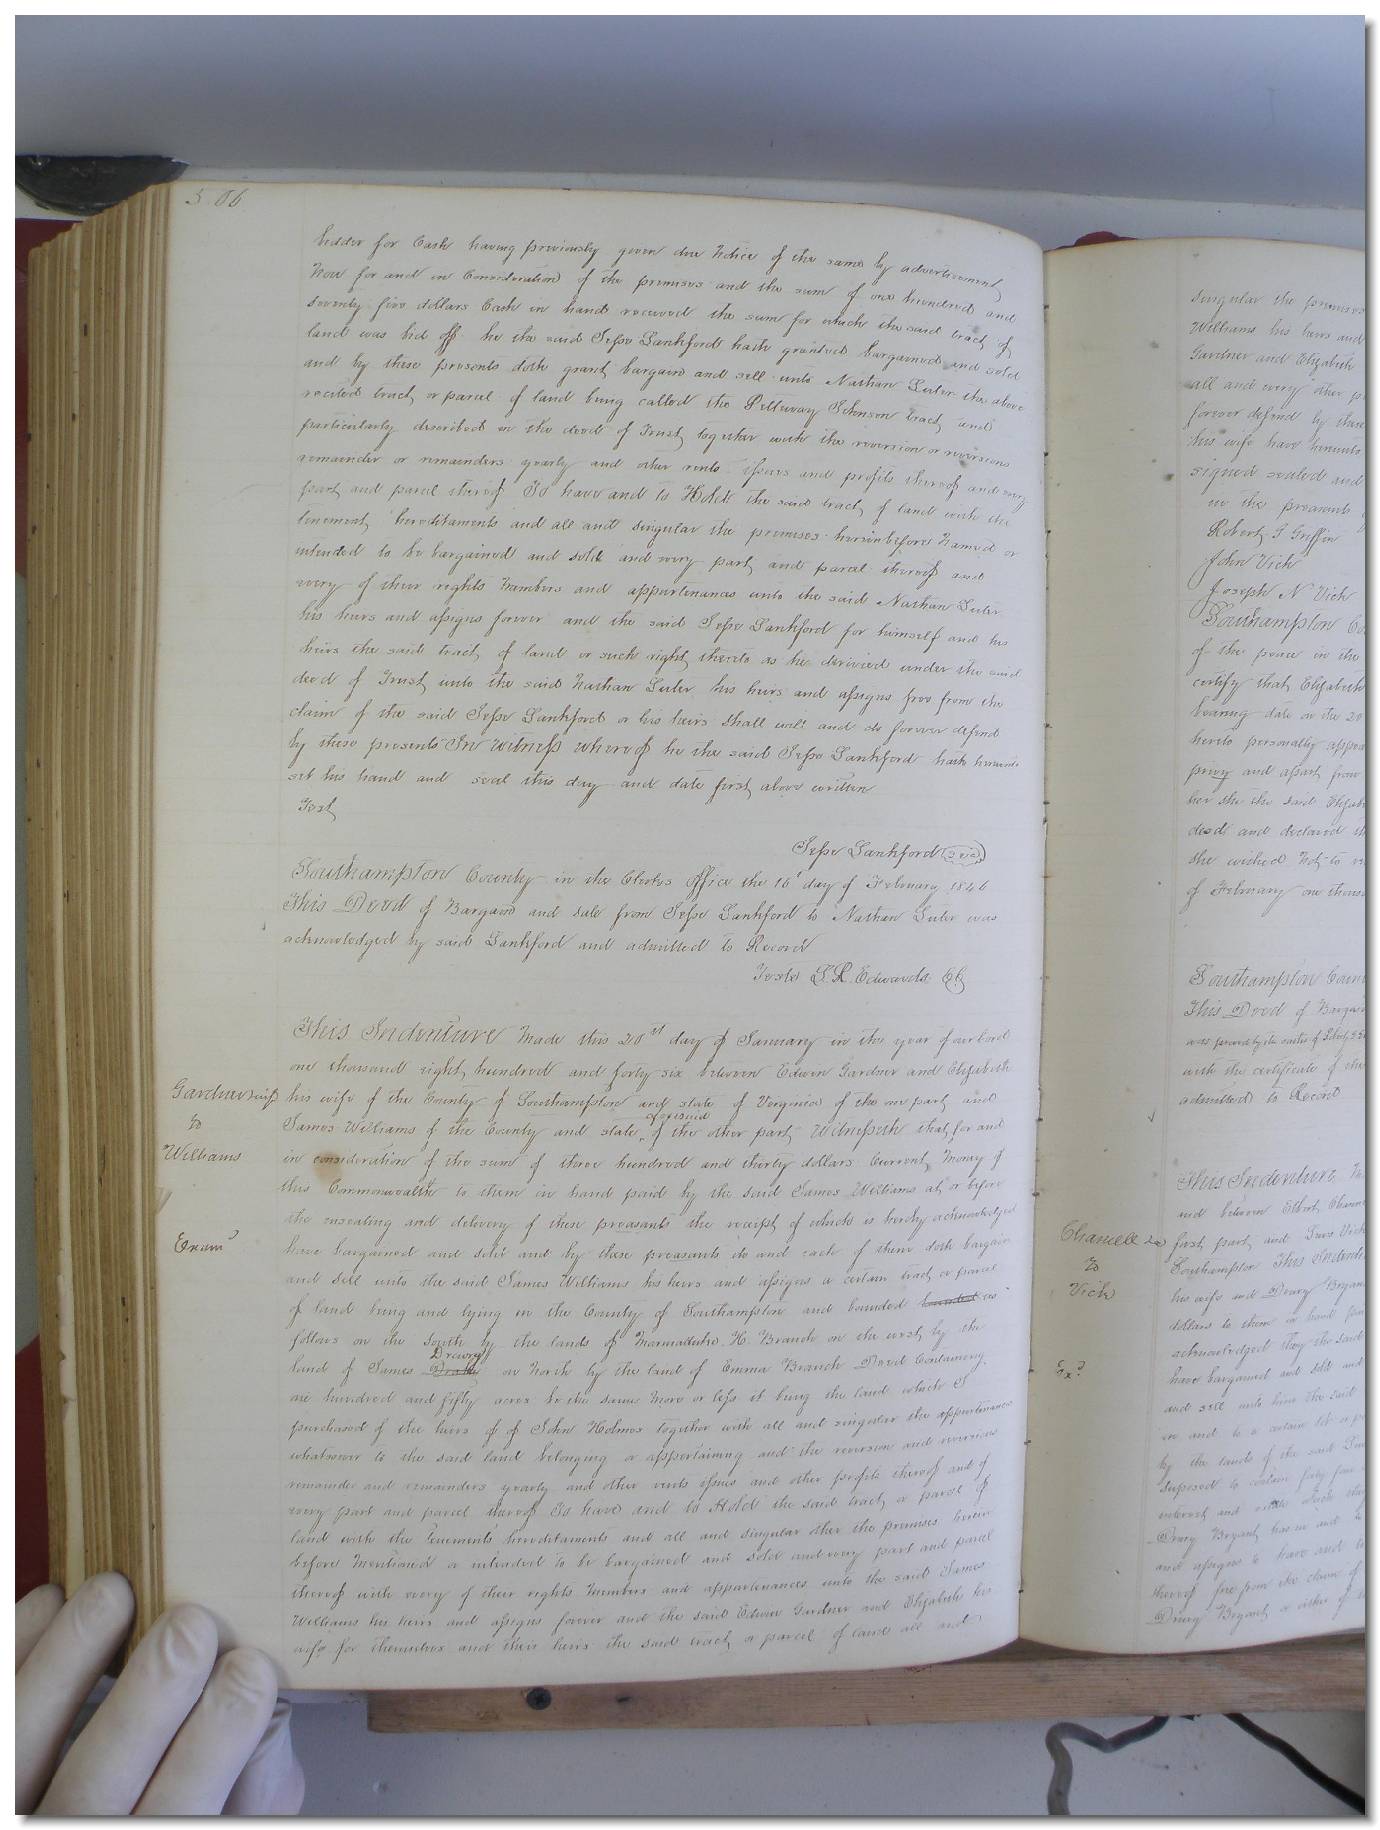 506
bidder for Cash having previously given due Notice of the same by advertisement
Now for and in Consideration of the premises and the sum of one hundred and
seventy five dollars Cash in hand received the sum for which the said tract of
land was bid off he the said Jesse Lankford hath granted bargained and sold
and by these presents doth grant bargain and sell unto Nathan Luter the above
recited tract or parcel of land being called the Pettaway Johnson tract and
particularly described in the deed of Trust together with the reversion or reversions
remainder or remainders yearly and other rents issues and profits thereof and every
part and parcel thereof To have and to Hold the said tract of land with the
tenement hereditaments and all and singular the premises hereinbefore Named or
intended to be bargained and sold and every part and parcel thereof and
every of their rights Members and appurtenances unto the said Nathan Luter
his heirs and assigns forever and the said Jesse Lankford for himself and his
heirs the said tract of land or such right thereto as he derived under the said
deed of Trust unto the said Nathan Luter his heirs and assigns free from the
claim of the said Jesse Lankford or his heirs shall will and do forever defend
by these presents In Witness whereof he the said Jesse Lankford hath hereunto
set his hand and seal this day and date first above written
Test
Jesse Lankford Seal
Southampton County in the Clerks Office the 16 day of February 1846
This Deed of Bargain and sale from Jesse Lankford to Nathan Luter was
acknowledged by said Lankford and admitted to Record
Teste L. R. Edwards CC
This Indenture Made this 20st day of January in the year of our Lord
one thousand eight hundred and forty six between Edwin Gardner and Elizabeth
Gardner & wife
to
Williams
his wife of the County of Southampton and state of Virginia of the one part and
James Williams of the County and state aforesaid of the other part Witnesseth that for and
in consideration of the sum of three hundred and thirty dollars Current Money of
this Commonwealth to them in hand paid by the said James Williams at or before
the ensealing and delivery of these preasants the receipt of which is hereby acknowledged
Examd
have bargained and sold and by these preasants do and each of them doth bargain
and sell unto the said James Williams his heirs and assigns a certain tract or parcel
of land being and lying in the County of Southampton and bounded bounded as
follows on the South by the lands of Marmaduke N. Branch on the west by the
land of James Drewry on North by the land of Emma Branch Decd Containing
one hundred and fifty acres be the same More or less it being the land which I
purchased of the heirs of of John Holmes together with all and singular the appurtenances
whatsoever to the said land belonging or appertaining and the reversion and reversions
remainder and remainders yearly and other rents issues and other profits thereof and of
every part and parcel thereof To have and to Hold the said tract or parcel of
land with the tenements hereditaments and all and singular other the premises herein
before Mentioned or intended to be bargained and sold and every part and parcel
thereof with every of their rights Members and appurtenances unto the said James
Williams his heirs and assigns forever and the said Edwin Gardner and Elizabeth his
wife for themselves and their heirs the said tract or parcel of land all and
singular the premises
Williams his heirs and
Gardner and Elizabeth
all and every other
forever defend by these
his wife have hereunto
signed sealed and
in the preasants
Robert G Griffin
John Vick
Joseph N Vick
Southampton
of the peace in the
certify that Elizabeth
bearing date on the 20
hereto personally
privy and apart from
her she the said
deed and declared
she wished Not to
of February one
Southampton
This Deed of
with the certificate of
admitted to Record
This Indenture
and between
to
Vick
Ex
first part and
Southampton This
his wife and Drury
dollars to them in hand
acknowledged they the said
have bargained and sold and
and sell unto him the said
in and to a certain
by the lands of the said
interest and
Drury Bryant
and assigns to have and to
thereof free from the claim of
Drury Bryant